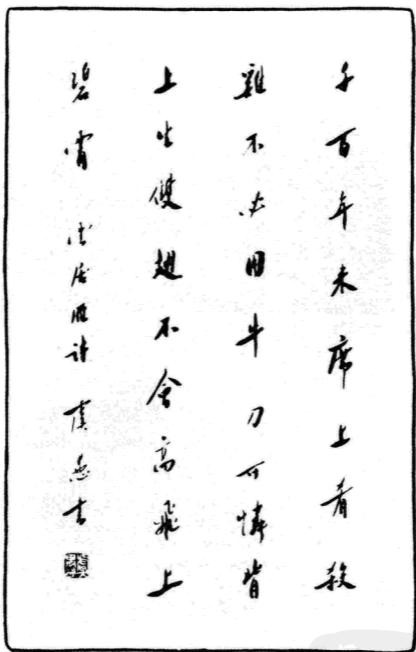 千百年来席上肴殺
雞不必用牛刀可憐背
上生雙翅不會高飛上
碧霄 詩 虞愚